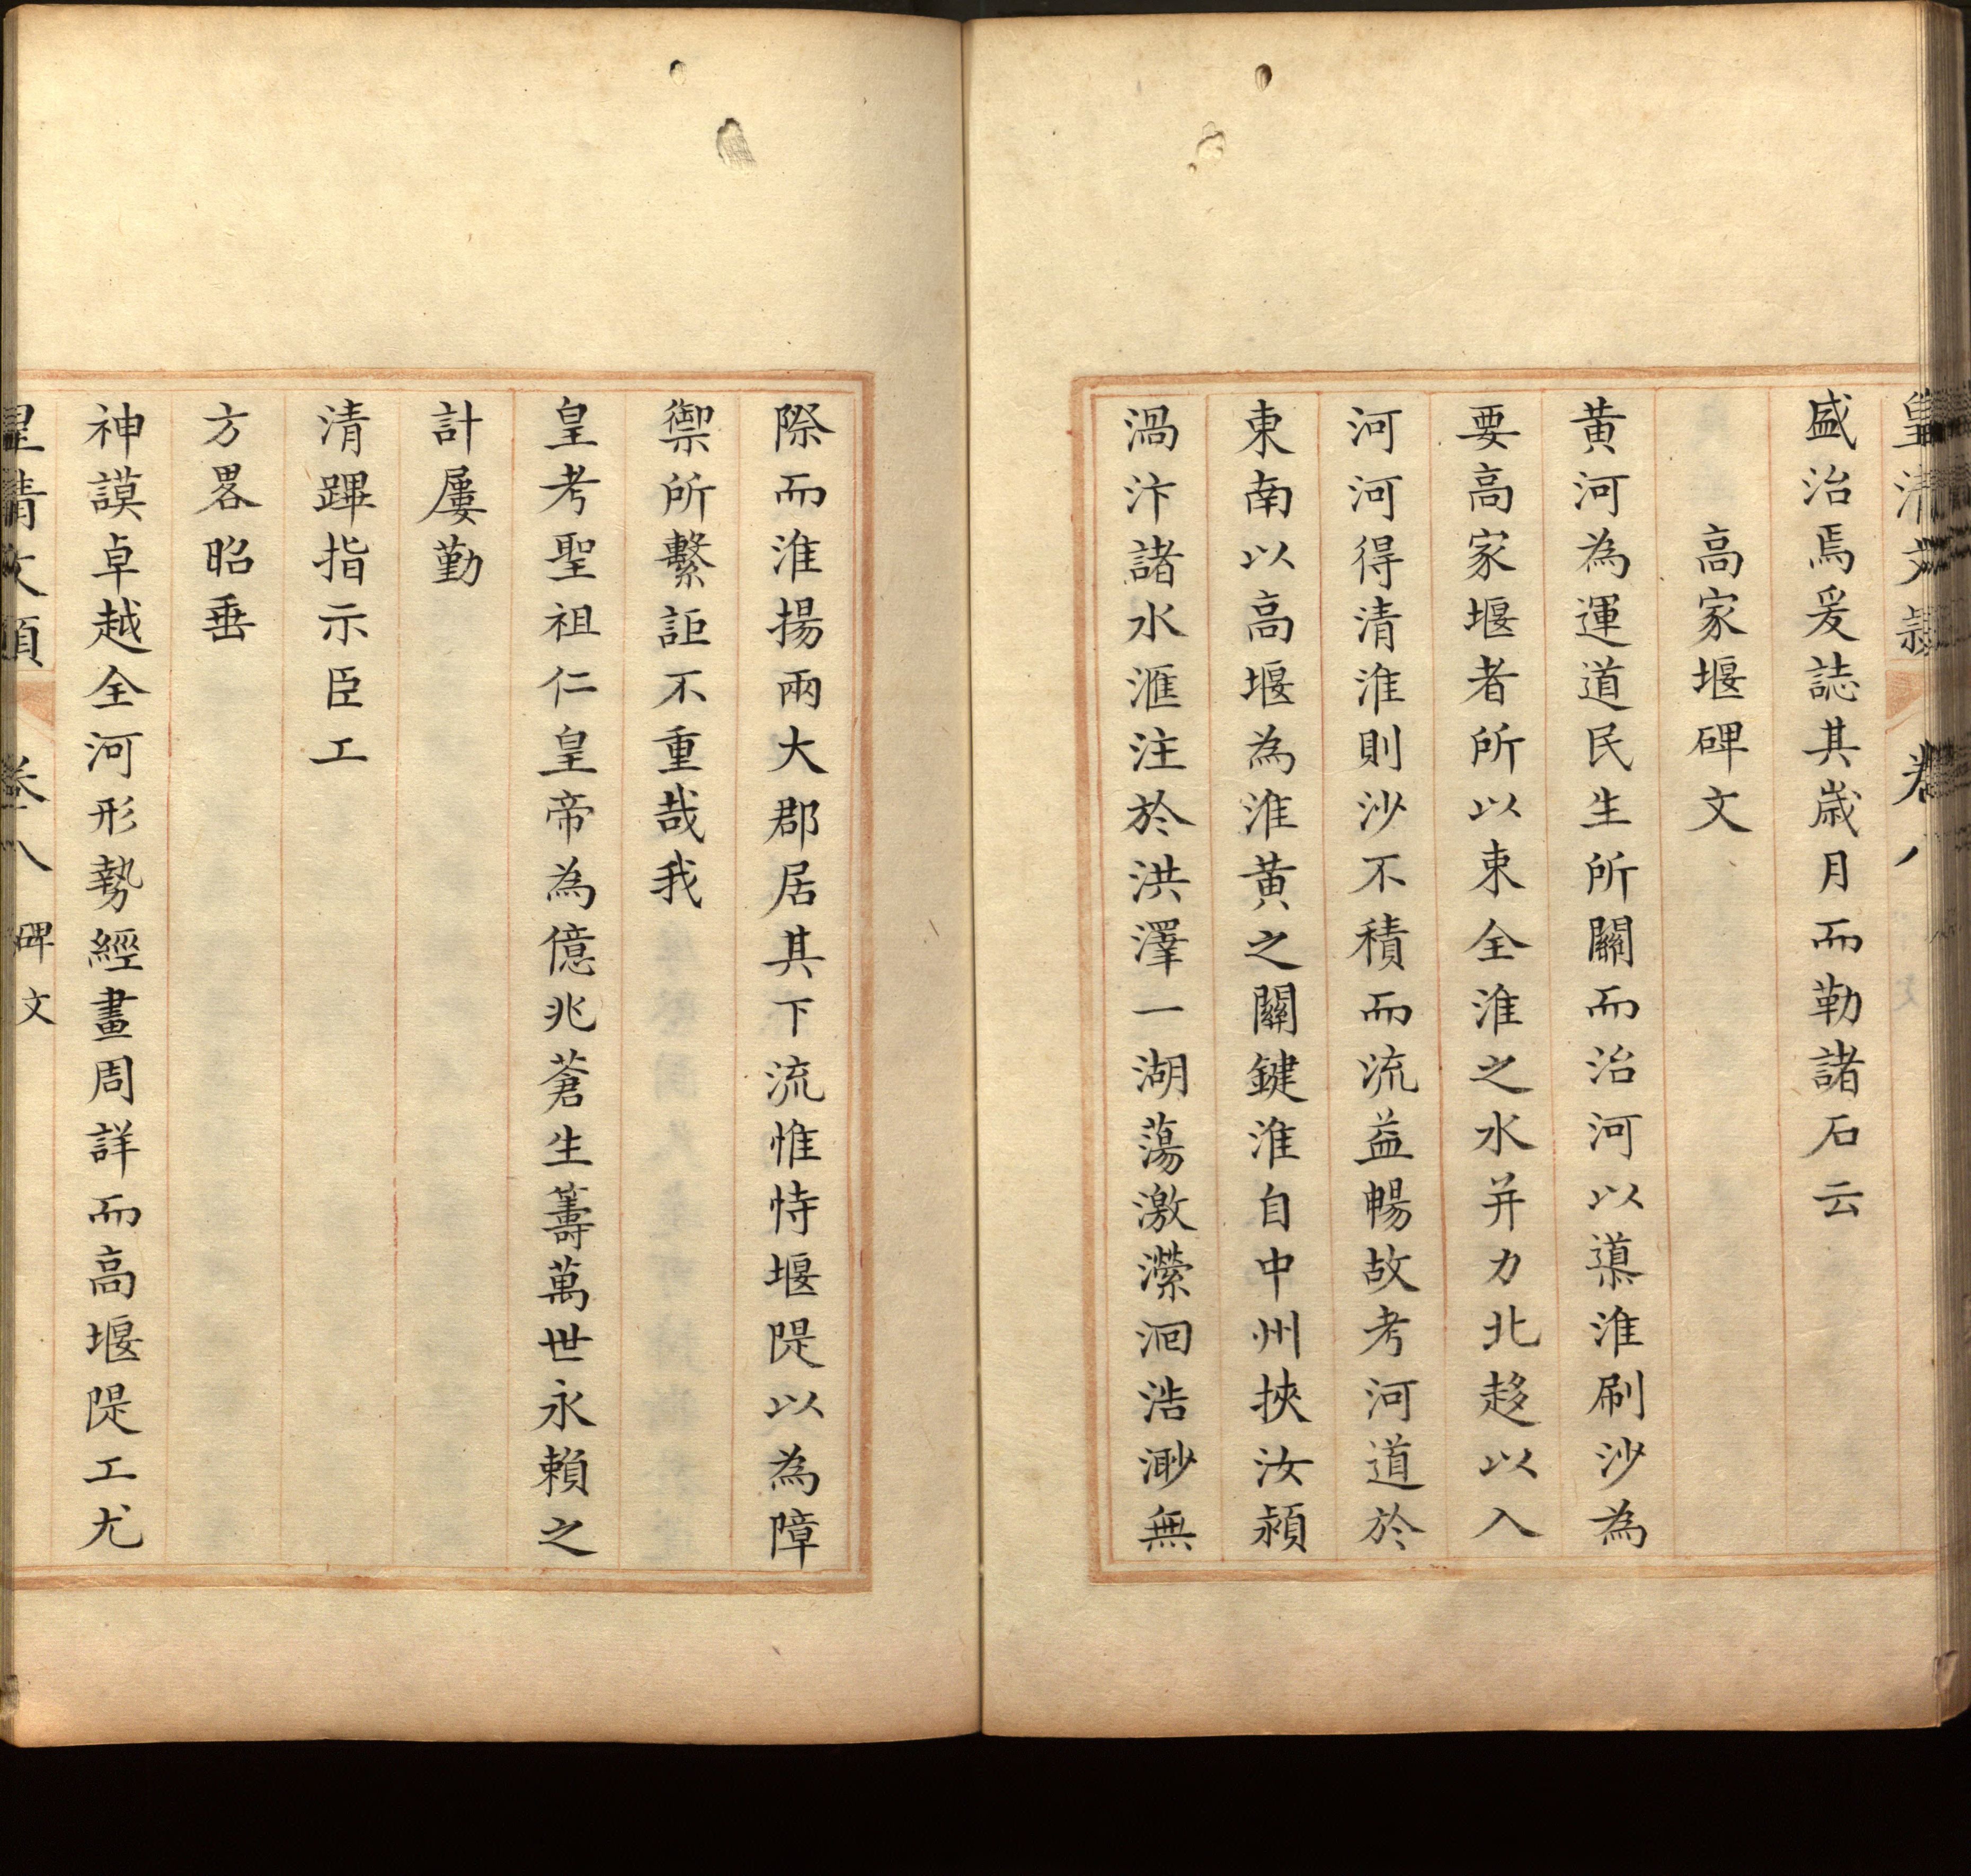 皇清文穎 卷八
盛治焉爰誌其歲月而勒諸石云
高家堰碑文
黃河為運道民生所關而治河以導淮刷沙為
要高家堰者所以束全淮之水并力北趍以入
河河得清淮則沙不積而流益暢故考河道於
東南以高堰為淮黃之關鍵淮自中州挾汝潁
渦汴諸水滙注於洪澤一湖蕩激瀠洄浩渺無
際而淮揚兩大郡居其下流惟恃堰隄以為障
禦所繫詎不重哉我
皇考聖祖仁皇帝為億兆蒼生籌萬世永賴之
計屢勤
清蹕指示臣工
方畧昭垂
神謨卓越全河形勢經畫周詳而高堰隄工尤
皇清文穎 卷八 碑文